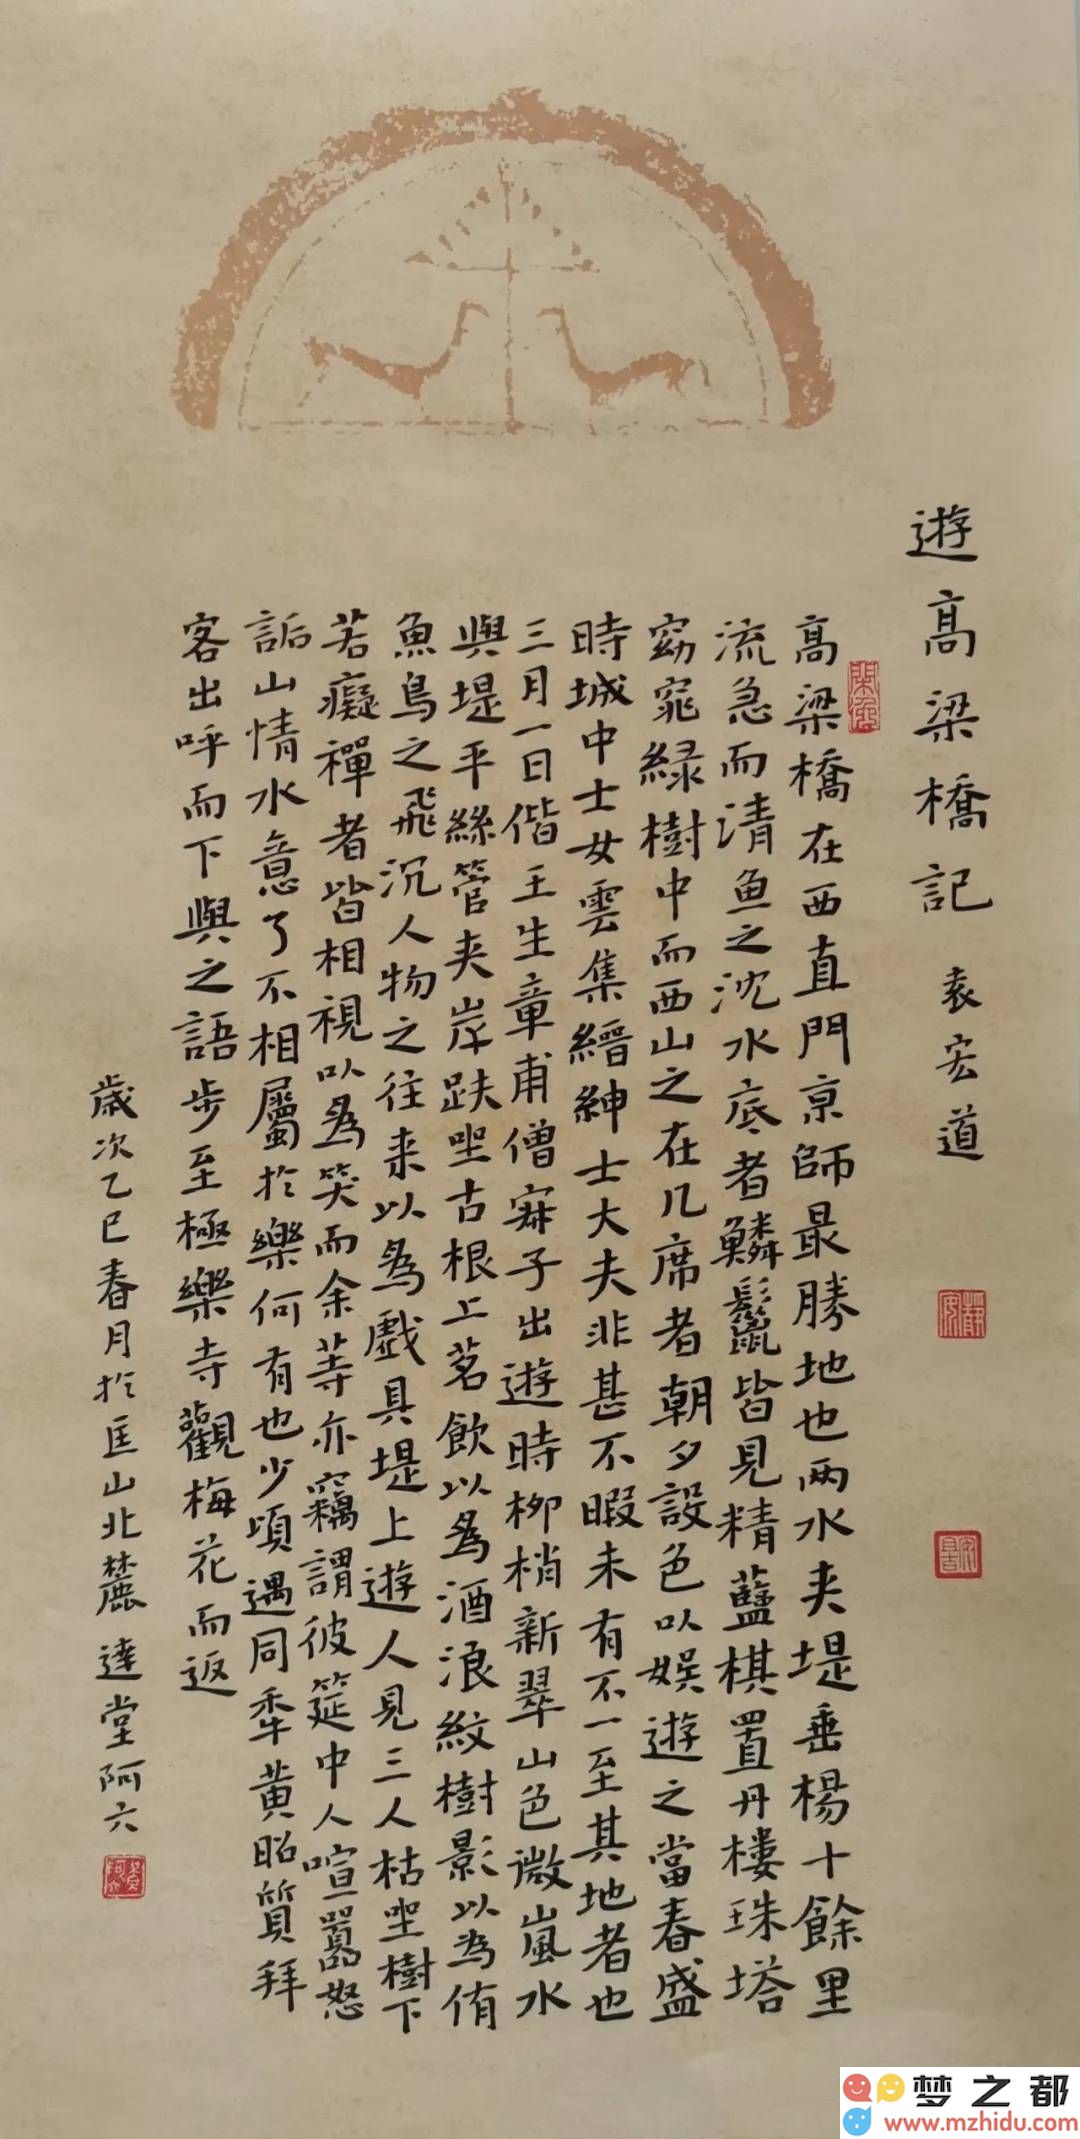 遊高梁橋記 袁宏道
高梁橋在西直門京師最勝地也两水夹堤垂楊十餘里
流急而清鱼之沈水底者鱗鬣皆見精藍棋置丹樓珠塔
窈窕緑樹中而西山之在几席者朝夕設色以娱遊之當春盛
時城中士女雲集縉紳士大夫非甚不暇未有不一至其地者也
三月一日偕王生章甫僧寂子出遊時柳梢新翠山色微嵐水
與堤平絲管夹岸趺坐古根上茗飲以為酒浪紋樹影以為侑
魚鳥之飛沉人物之往来以為戲具堤上遊人見三人枯坐樹下
若癡禪者皆相視以為笑而余等亦竊謂彼筵中人喧嚣怒
詬山情水意了不相屬於樂何有也少頃遇同年黄昭質拜
客出呼而下與之語步至極樂寺觀梅花而返
歲次乙巳春月於匡山北麓達堂阿六
梦之都
www.mzhidu.com